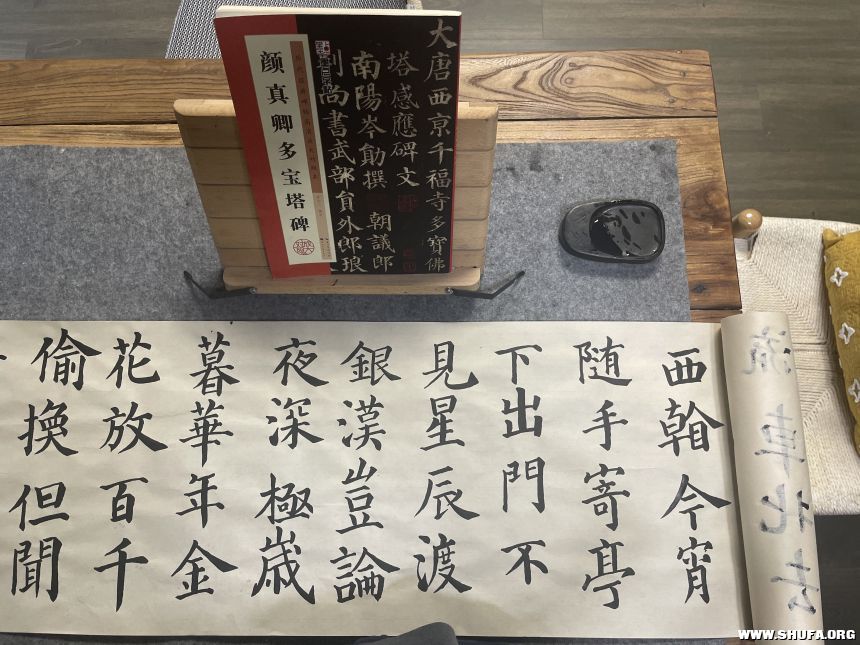 大唐西京千福寺多寶佛
塔感應碑文
南陽岑勛撰 朝議郎
判尚書武部員外郎琅
颜真卿多宝塔碑
流車北去
西翰今宵
随手寄亭
下出門不
見星辰渡
銀漢豈論
夜深極歲
暮華年金
花放百千
偷換但聞
WWW.SHUFA.ORG